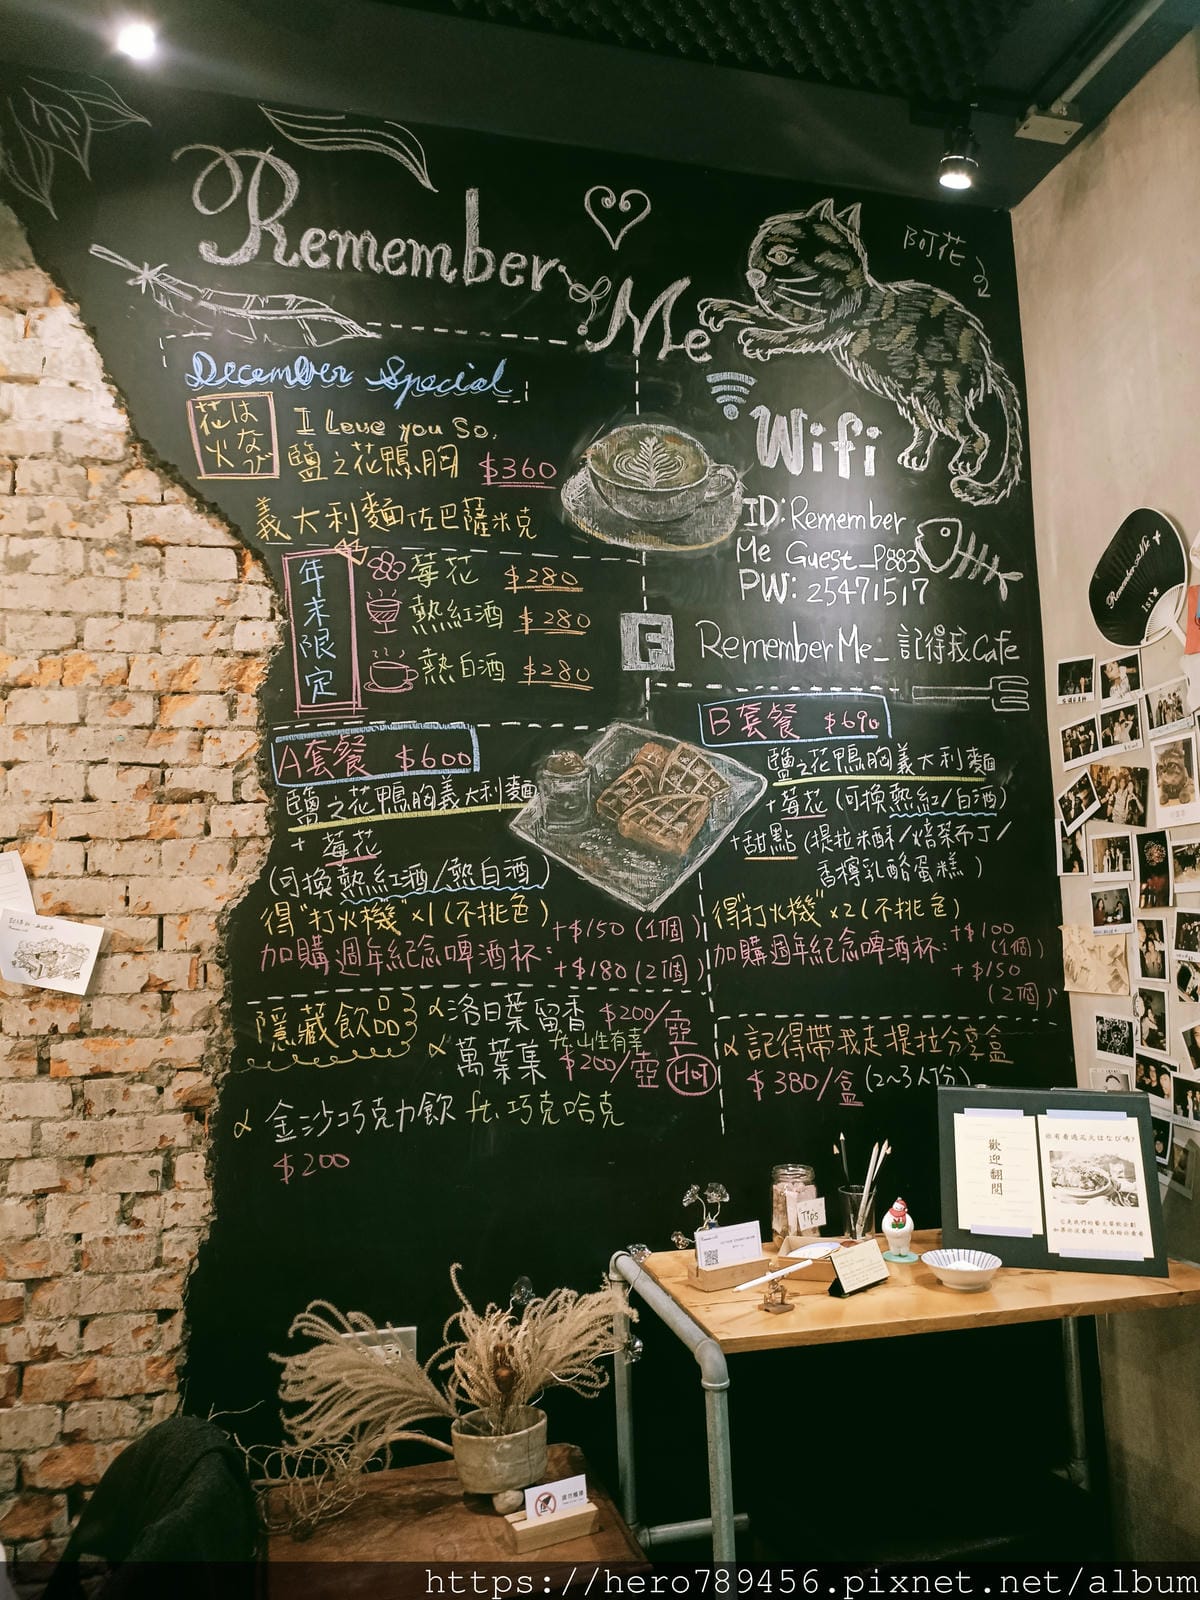 Remember
Me
阿花
December Special
花火
はなび
I Love you So.
鹽之花鴨胸 $360
義大利麵佐巴薩米克
年末限定
莓花 $280
熱紅酒 $280
熱白酒 $280
Wifi
ID:Remember
Me Guest_P883
PW: 25471517
F RememberMe_記得我Cafe
A套餐 $600
鹽之花鴨胸義大利麵
+ 莓花
(可換熱紅酒/熱白酒)
得"打火機"x1(不挑色)
加購週年紀念啤酒杯:
+$150(1個)
+$180(2個)
B套餐 $690
鹽之花鴨胸義大利麵
+莓花(可換熱紅/白酒)
+甜點(提拉米酥/焙茶布丁/
香檸乳酪蛋糕)
得"打火機"x2(不挑色)
加購週年紀念啤酒杯:
+$100
(1個)
+$150
(2個)
隱藏飲品
洛日葉留香 $200/壺
ft.山生有幸
萬葉集 $200/壺 HOT
金沙巧克力飲 ft.巧克哈克
$200
記得帶我走提拉分享盒
$380/盒(2~3人份)
Remember Me
1st
Tips
歡迎翻閱
你有看過花火はなび嗎?
https://hero789456.pixnet.net/album